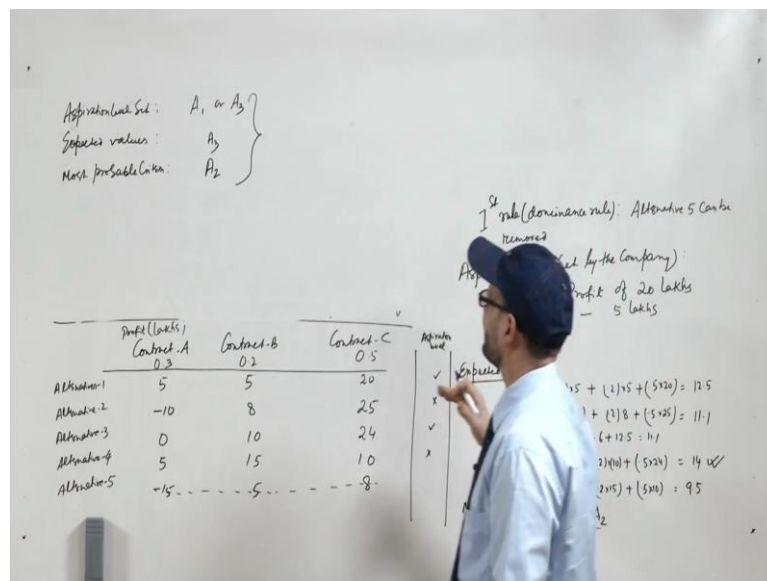 Aspiration level Set: A1 or A3
Expected values: A3
Most probable Criterion: A2
1st rule (dominance rule): Alternative 5 Can be
removed
Set by the Company):
Profit of 20 lakhs
- 5 lakhs
Profit (lakhs)
Contract-A Contract-B Contract-C
0.3 0.2 0.5
Aspiration
level
Alternative-1 5 5 20 ✓
Alternative-2 -10 8 25 x
Alternative-3 0 10 24 ✓
Alternative-4 5 15 10 x
Alternative-5 -15 5 8
Expected
x5 + (.2)x5 + (.5x20) = 12.5
+ (.2)8 + (.5x25) = 11.1
.6+12.5 = 11.1
2)x(10) + (.5x24) = 14 ✓
2x15) + (.5x10) = 9.5
A2